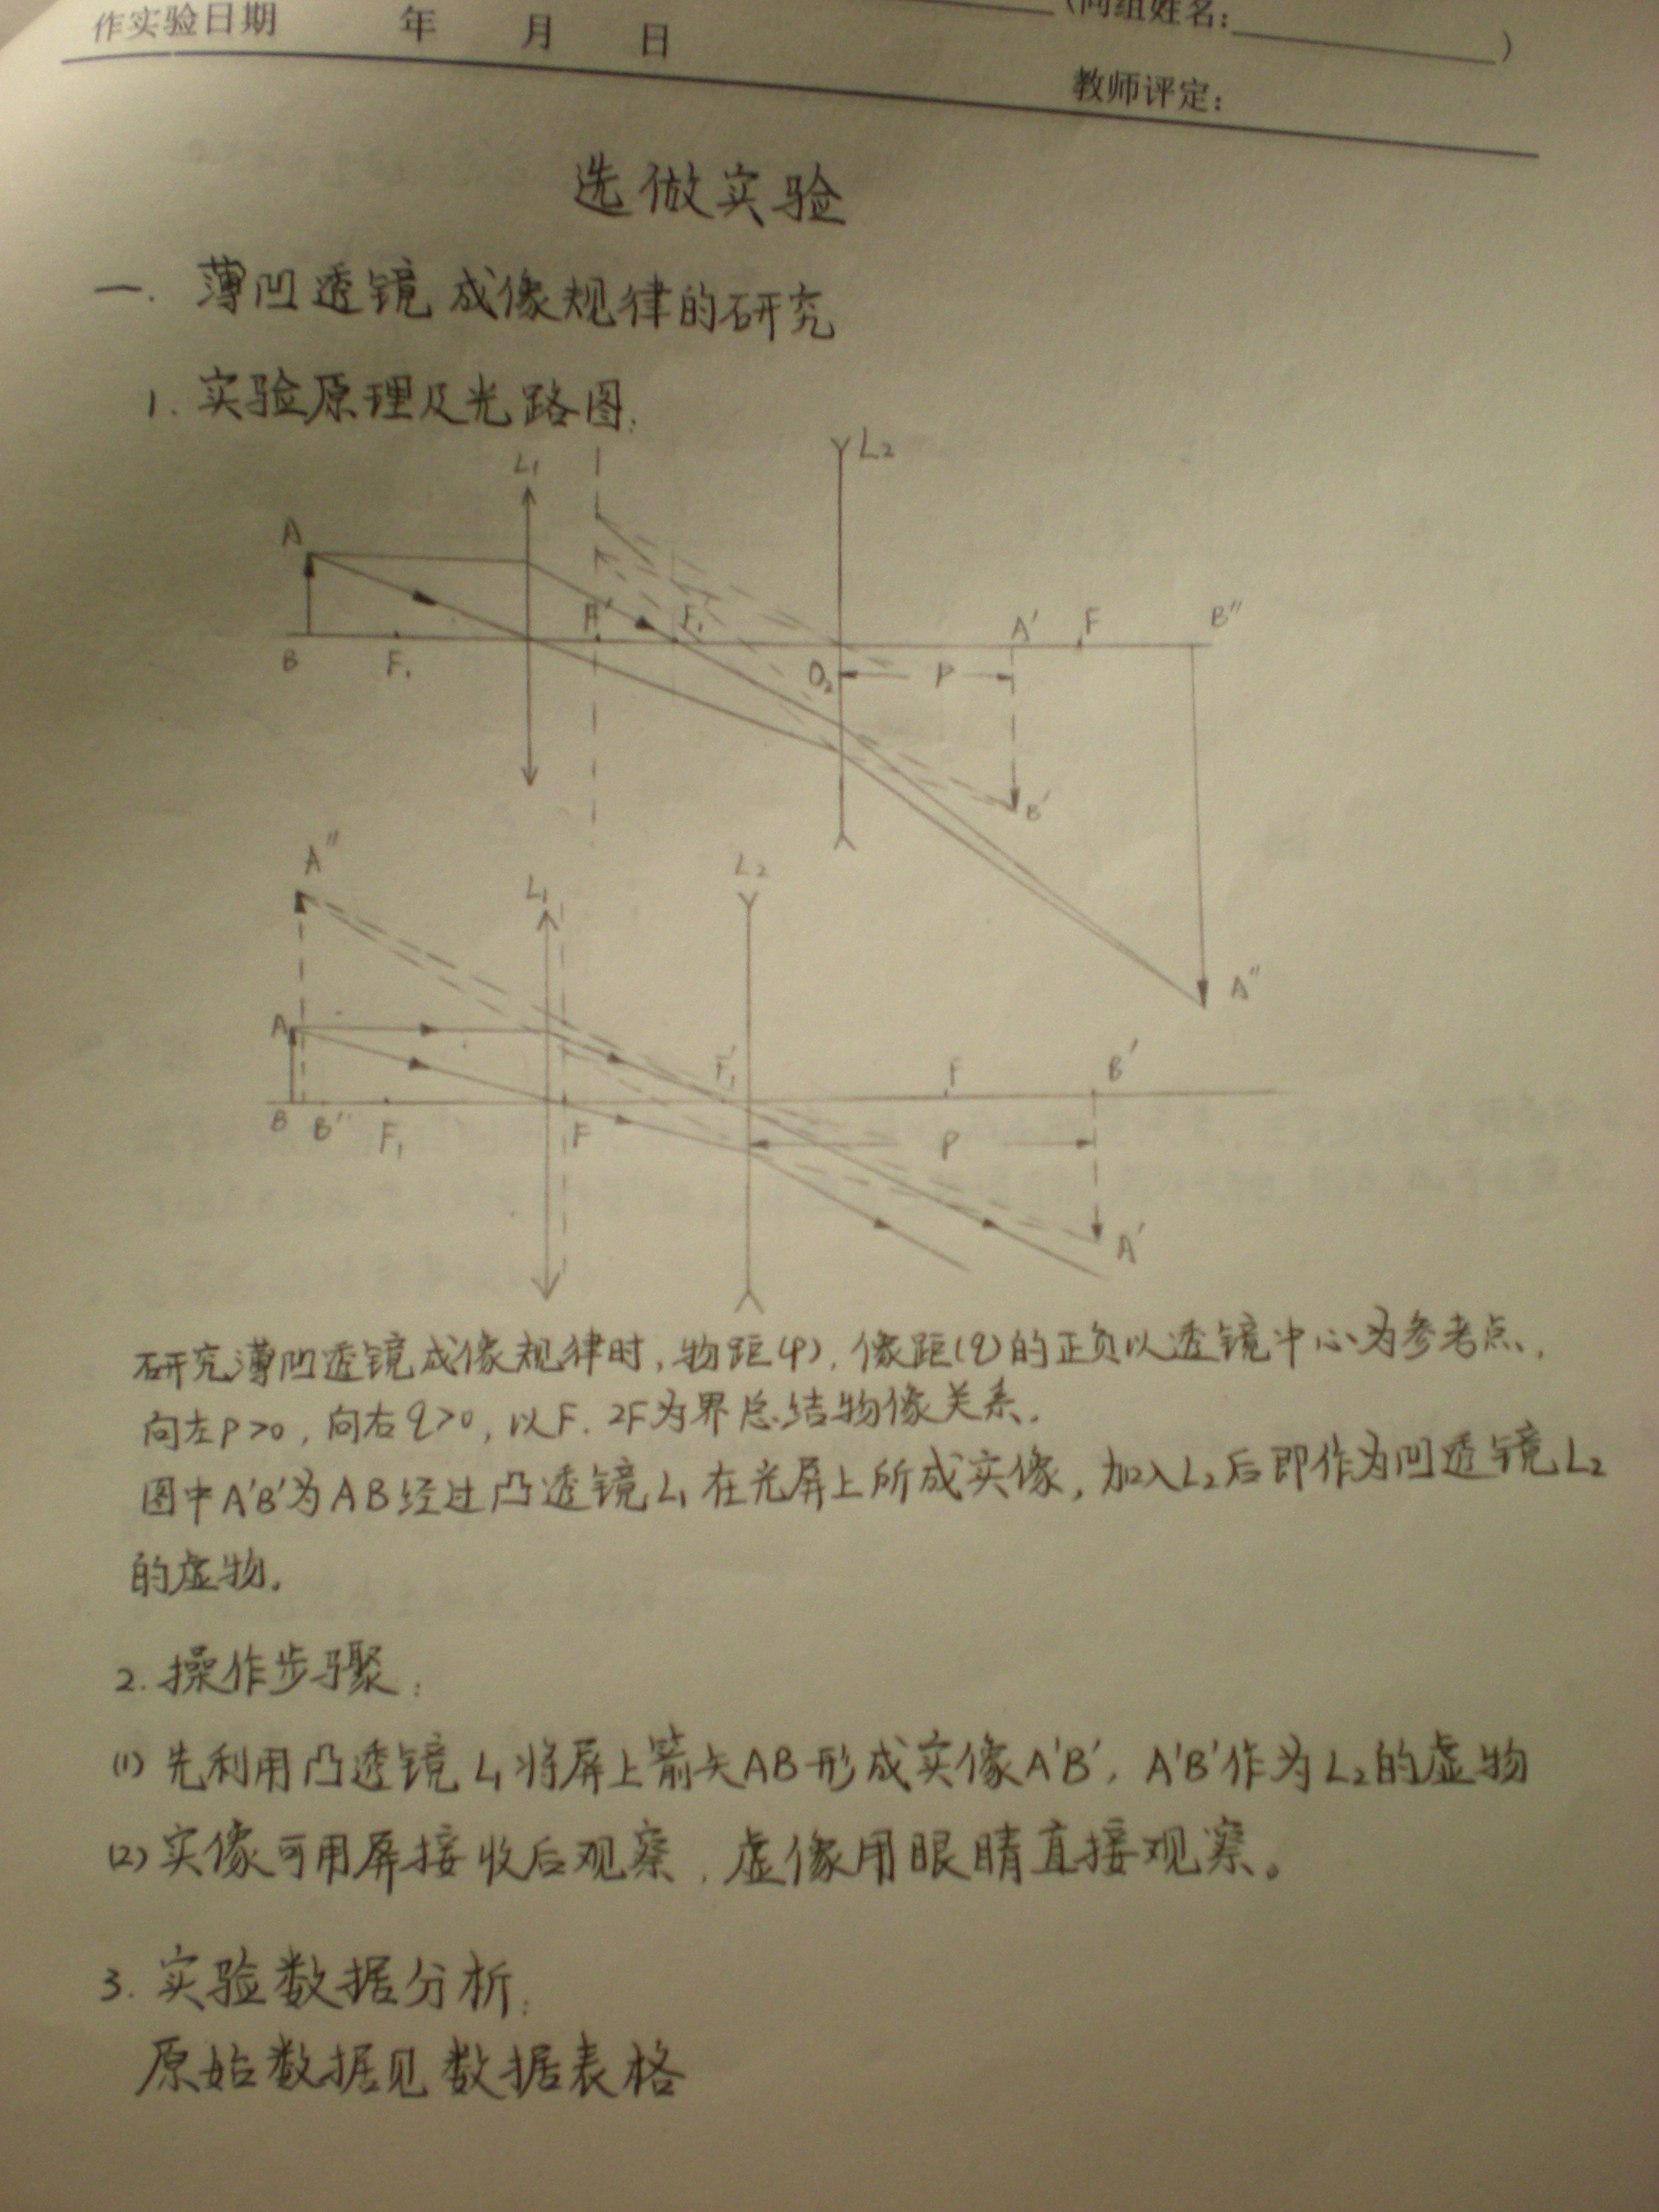 (同组姓名:                    )
作实验日期      年      月      日
教师评定:
选做实验
一. 薄凹透镜成像规律的研究
1. 实验原理及光路图:
L₁
L₂
A
B
F₁
F'
F₁'
O₂
P
A'
F
B''
B'
A''
A''
L₁
L₂
A
B
B''
F₁
F
F₁'
F
B'
P
A'
研究薄凹透镜成像规律时,物距(p),像距(q)的正负以透镜中心为参考点,
向左p>0,向右q>0,以F.2F为界总结物像关系.
图中A'B'为AB经过凸透镜L₁在光屏上所成实像,加入L₂后即作为凹透镜L₂
的虚物。
2. 操作步骤:
(1) 先利用凸透镜L₁将屏上箭矢AB形成实像A'B',A'B'作为L₂的虚物
(2) 实像可用屏接收后观察,虚像用眼睛直接观察。
3. 实验数据分析:
原始数据见数据表格